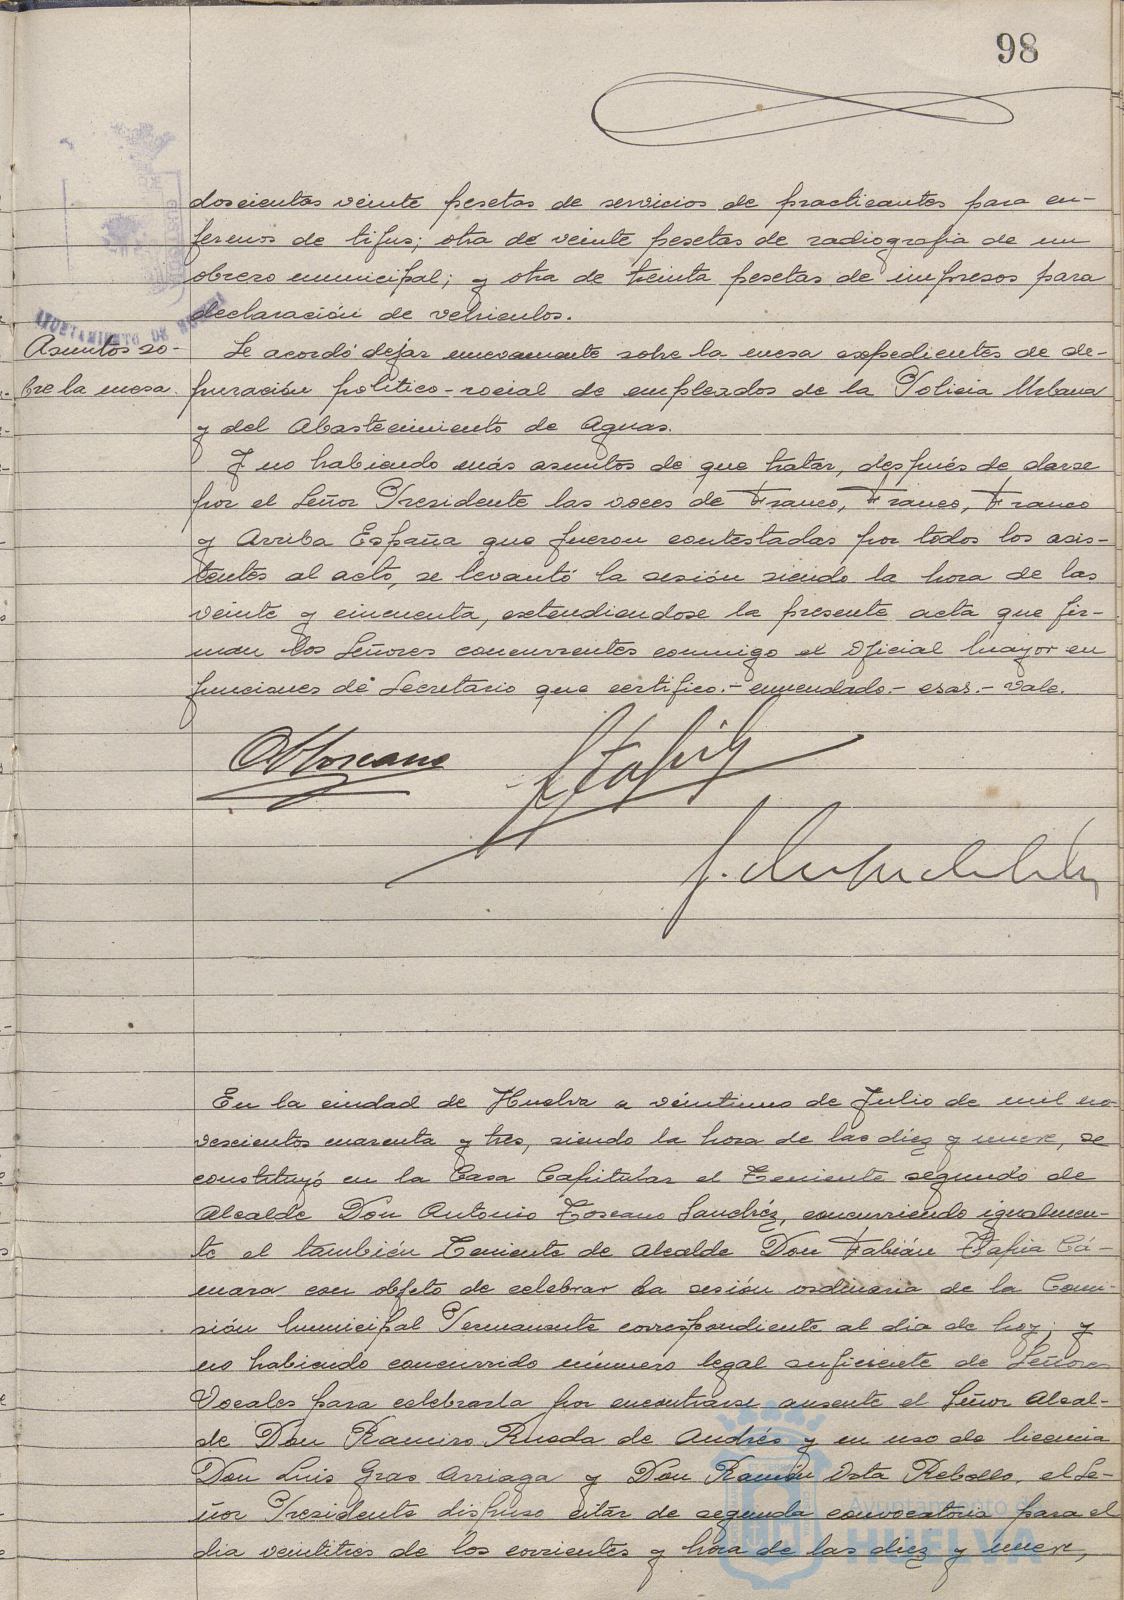 98
doscientas veinte pesetas de servicios de practicantes para en-
fermos de tifus; otra de veinte pesetas de radiografia de un
obrero municipal; y otra de treinta pesetas de impresos para
declaración de vehiculos.
AYUNTAMIENTO DE HUELVA
Asuntos so-
bre la mesa.
Se acordó dejar nuevamente sobre la mesa expedientes de de-
puración politico-social de empleados de la Policia Urbana
y del Abastecimiento de Aguas.
Y no habiendo más asuntos de que tratar, después de darse
por el Señor Presidente las voces de Franco, Franco, Franco
y Arriba España que fueron contestadas por todos los asis-
tentes al acto, se levantó la sesión siendo la hora de las
veinte y cincuenta, extendiendose la presente acta que fir-
man los Señores concurrentes conmigo el Oficial Mayor en
funciones de Secretario que certifico.- enmendado.- esas.- Vale.
A Toscano
F Tapia
En la ciudad de Huelva a veintiuno de Julio de mil no-
vescientos cuarenta y tres, siendo la hora de las diez y nueve, se
constituyó en la Casa Capitular el Teniente segundo de
Alcalde Don Antonio Toscano Sanchéz, concurriendo igualmen-
te el también Teniente de Alcalde Don Fabián Tapia Cá-
mara con objeto de celebrar la sesión ordinaria de la Comi-
sión Municipal Permanente correspondiente al dia de hoy; y
no habiendo concurrido número legal suficiente de Señores
Vocales para celebrarla por encontrarse ausente el Señor Alcal-
de Don Ramiro Rueda de Andrés y en uso de licencia
Don Luis Gras Arriaga y Don Ramón Vota Rebollo, el Se-
ñor Presidente dispuso citar de segunda convocatoria para el
dia veintitres de los corrientes y hora de las diez y nueve,
Ayuntamiento de
HUELVA